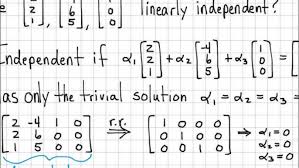 [2 2 1], [-4 6 5], [1 0 0] linearly independent?
Independent if α₁ [2 2 1] + α₂ [-4 6 5] + α₃ [1 0 0] =
as only the trivial solution α₁ = 0 α₂ = 0 α₃ =
[2 -4 1 0
2 6 0 0
1 5 0 0] r.r. → [1 0 0 0
0 1 0 0
0 0 1 0] → α₁ = 0
α₂ = 0
α₃ = 0